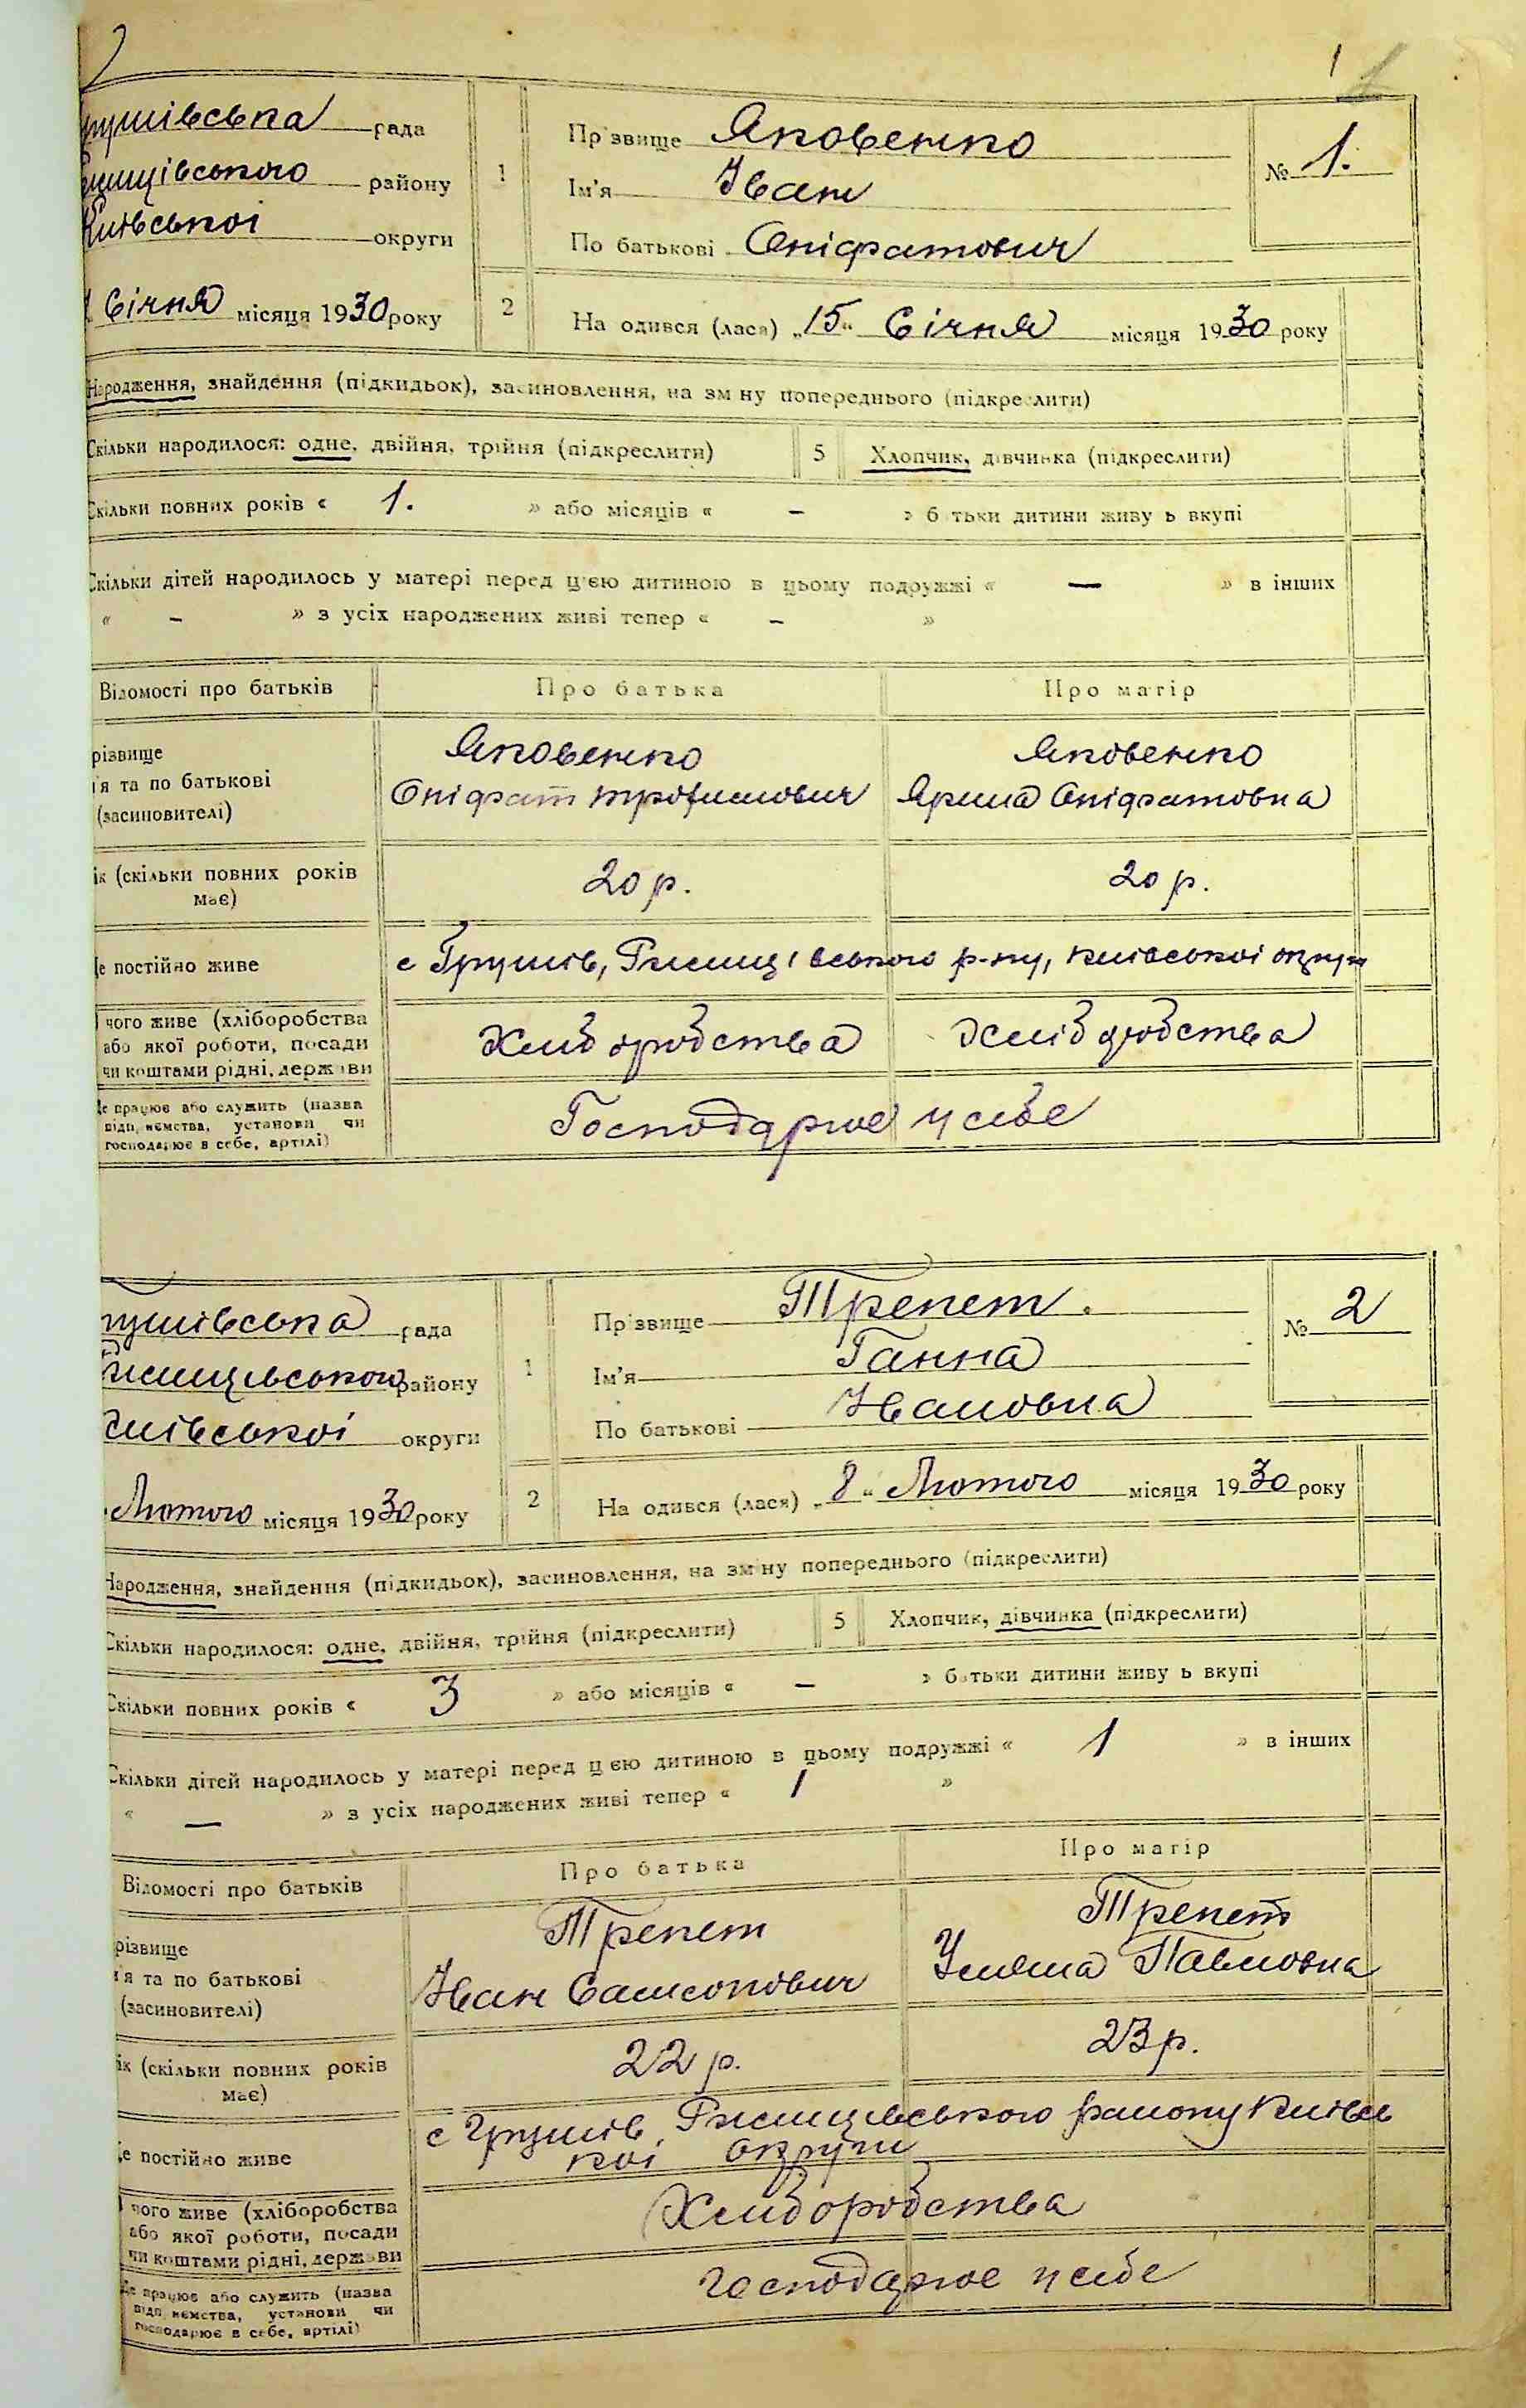 1
рушівська рада
району
Київської округи
Січня місяця 1930 року
1
Прізвище Яковенко
Ім'я Іван
По батькові Оніфатович
№ 1.
2
На одився (лася) „15“ Січня місяця 1930 року
Народження, знайдення (підкидьок), засиновлення, на зм ну попереднього (підкреслити)
Скільки народилося: одне, двійня, трійня (підкреслити)
5 Хлопчик, дівчинка (підкреслити)
Скільки повних років « 1. » або місяців « – » б тьки дитини живу ь вкупі
Скільки дітей народилось у матері перед ц'єю дитиною в цьому подружжі « — » в інших
« – » з усіх народжених живі тепер « – »
Відомості про батьків Про батька Про матір
різвище
'я та по батькові
(засиновителі)
Яковенко
Оніфат Трофимович
Яковенко
Ярина Оніфатовна
ік (скільки повних років
має)
20 р. 20 р.
е постійно живе с Грушів, Ржищівського р-ну, Київської округи
чого живе (хліборобства
або якої роботи, посади
чи коштами рідні, держави
Хліборобства Хліборобства
е працює або служить (назва
підп иємства, установи чи
господарює в себе, артілі)
Господарює у себе
рушівська рада
Ржищівського району
Київської округи
Лютого місяця 1930 року
1
Прізвище Трепет.
Ім'я Ганна
По батькові Івановна
№ 2
2
На одився (лася) „8“ Лютого місяця 1930 року
Народження, знайдення (підкидьок), засиновлення, на зміну попереднього (підкреслити)
Скільки народилося: одне, двійня, трійня (підкреслити)
5 Хлопчик, дівчинка (підкреслити)
Скільки повних років « 3 » або місяців « – » батьки дитини живу ь вкупі
Скільки дітей народилось у матері перед ц єю дитиною в цьому подружжі « 1 » в інших
« — » з усіх народжених живі тепер « 1 »
Відомості про батьків Про батька Про матір
різвище
'я та по батькові
(засиновителі)
Трепет
Іван Самсонович
Трепет
Уляна Павловна
ік (скільки повних років
має)
22 р. 23 р.
е постійно живе
с Грушів, Ржищівського району Київсь
кої округи
чого живе (хліборобства
або якої роботи, посади
чи коштами рідні, держави
Хліборобства
е працює або служить (назва
підп иємства, установи чи
господарює в себе, артілі)
господарює у себе